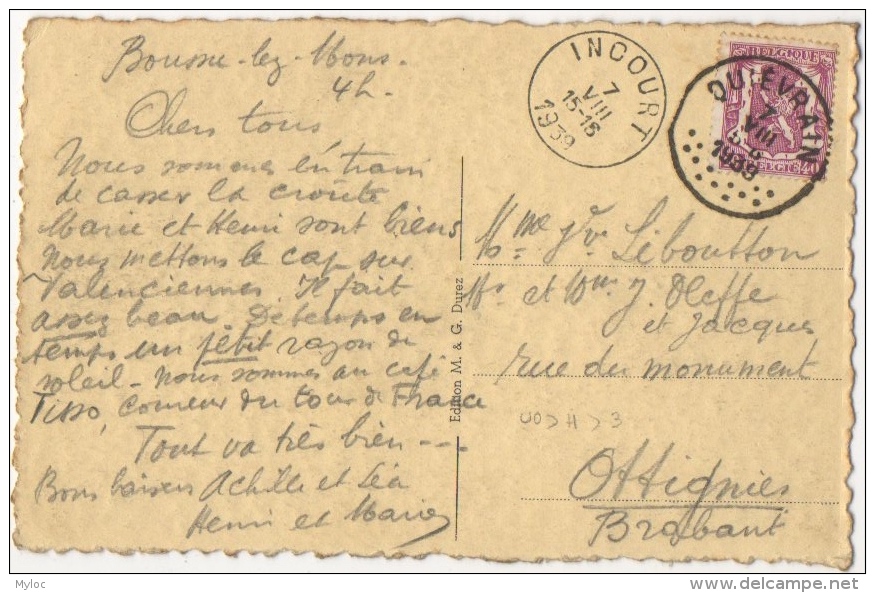 Boussu-lez-Mons.
4h.
Chers tous
Nous sommes en train
de casser la croûte
Marie et Henri sont biens
Nous mettons le cap sur
Valenciennes Il fait
assez beau. De temps en
temps un petit rayon de
soleil - nous sommes au café
Tisso, coureur du tour de France
Tout va très bien ---
Bons baisers Achille et Léa
Henri et Marie
Edition M. & G. Durez
INCOURT
7
VIII
15-16
1939
BELGIQUE
BELGIE 40
QUIEVRAIN
7
VIII
1939
Mme Vve Liboutton
Mr et Mme J. Oleffe
et Jacques
rue du monument
Ottignies
Brabant
Myloc
delcampe.net